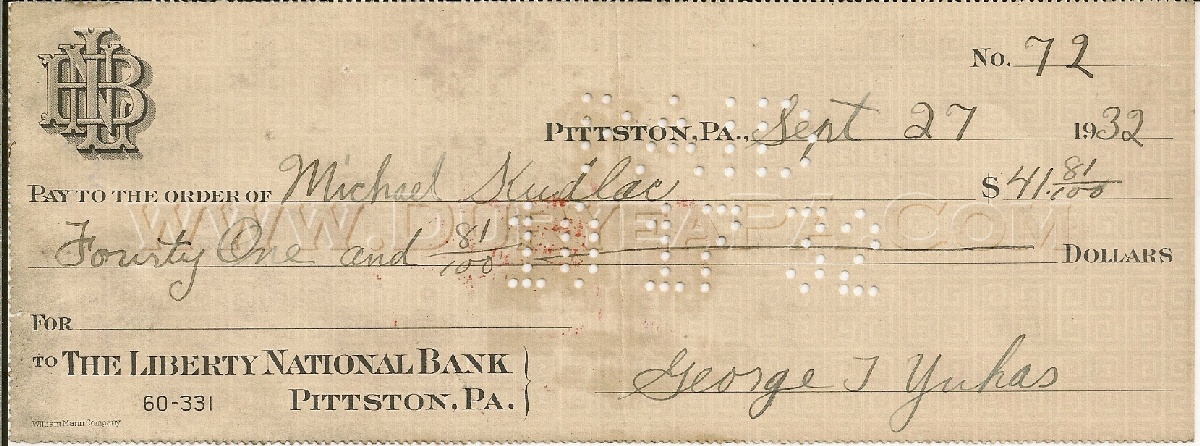 LNB
No. 72
PITTSTON, PA., Sept 27 1932
PAY TO THE ORDER OF Michael Kudlac $ 41.81/100
WWW.DURYEAPA.COM
Fourty One and 81/100 DOLLARS
FOR
TO THE LIBERTY NATIONAL BANK
60-331 PITTSTON, PA.
George T Yuhas
William Mann Company